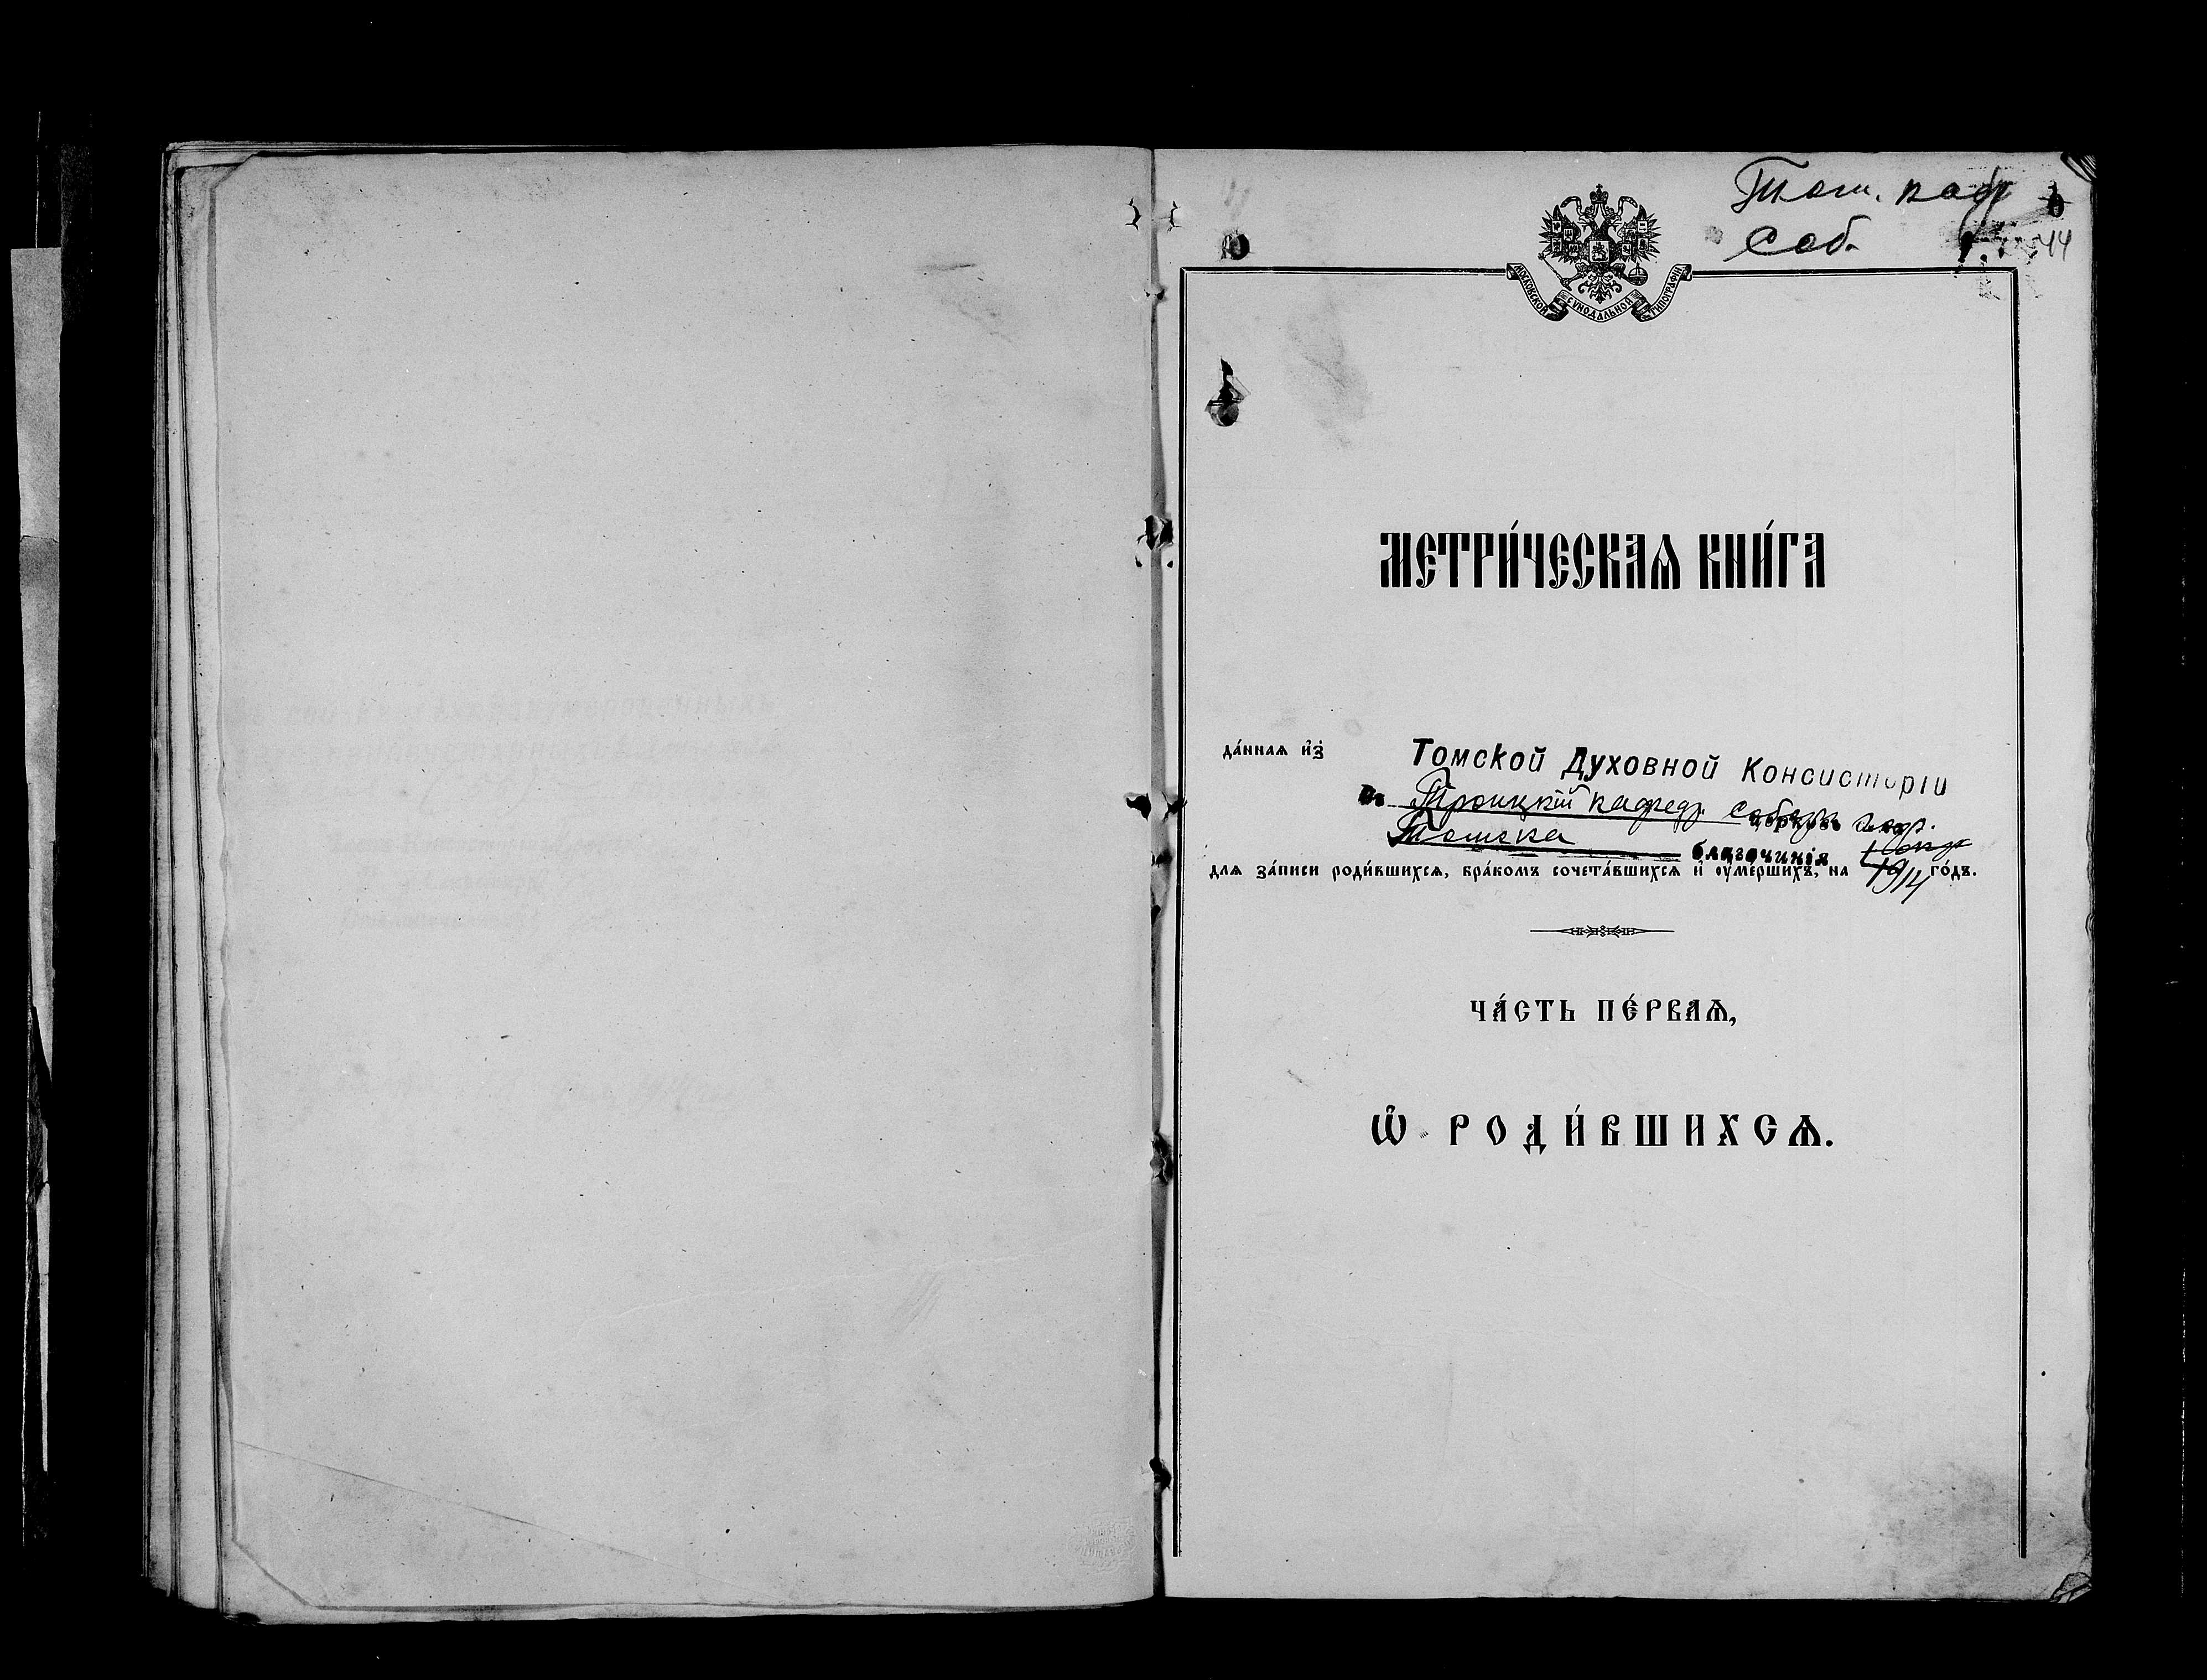 Том. каф
Соб.
44
МОСКОВСКОЙ СѴНОДАЛЬНОЙ ТИПОГРАФІИ
МЕТРИ́ЧЕСКАѦ КНИ́ГА
да́ннаѧ и҆з̾ Томской Духовной Консисторіи
Въ Троицкій кафедр. Соборъ церковь гор.
Томска благочинія
для за́писи роди́вшихсѧ, бра́комъ сочета́вшихсѧ и҆ ѹ҆ме́ршихъ, на 1914 го́дъ.
ЧА́СТЬ ПЕ́РВАѦ,
Ѽ РОДИ́ВШИХСѦ.